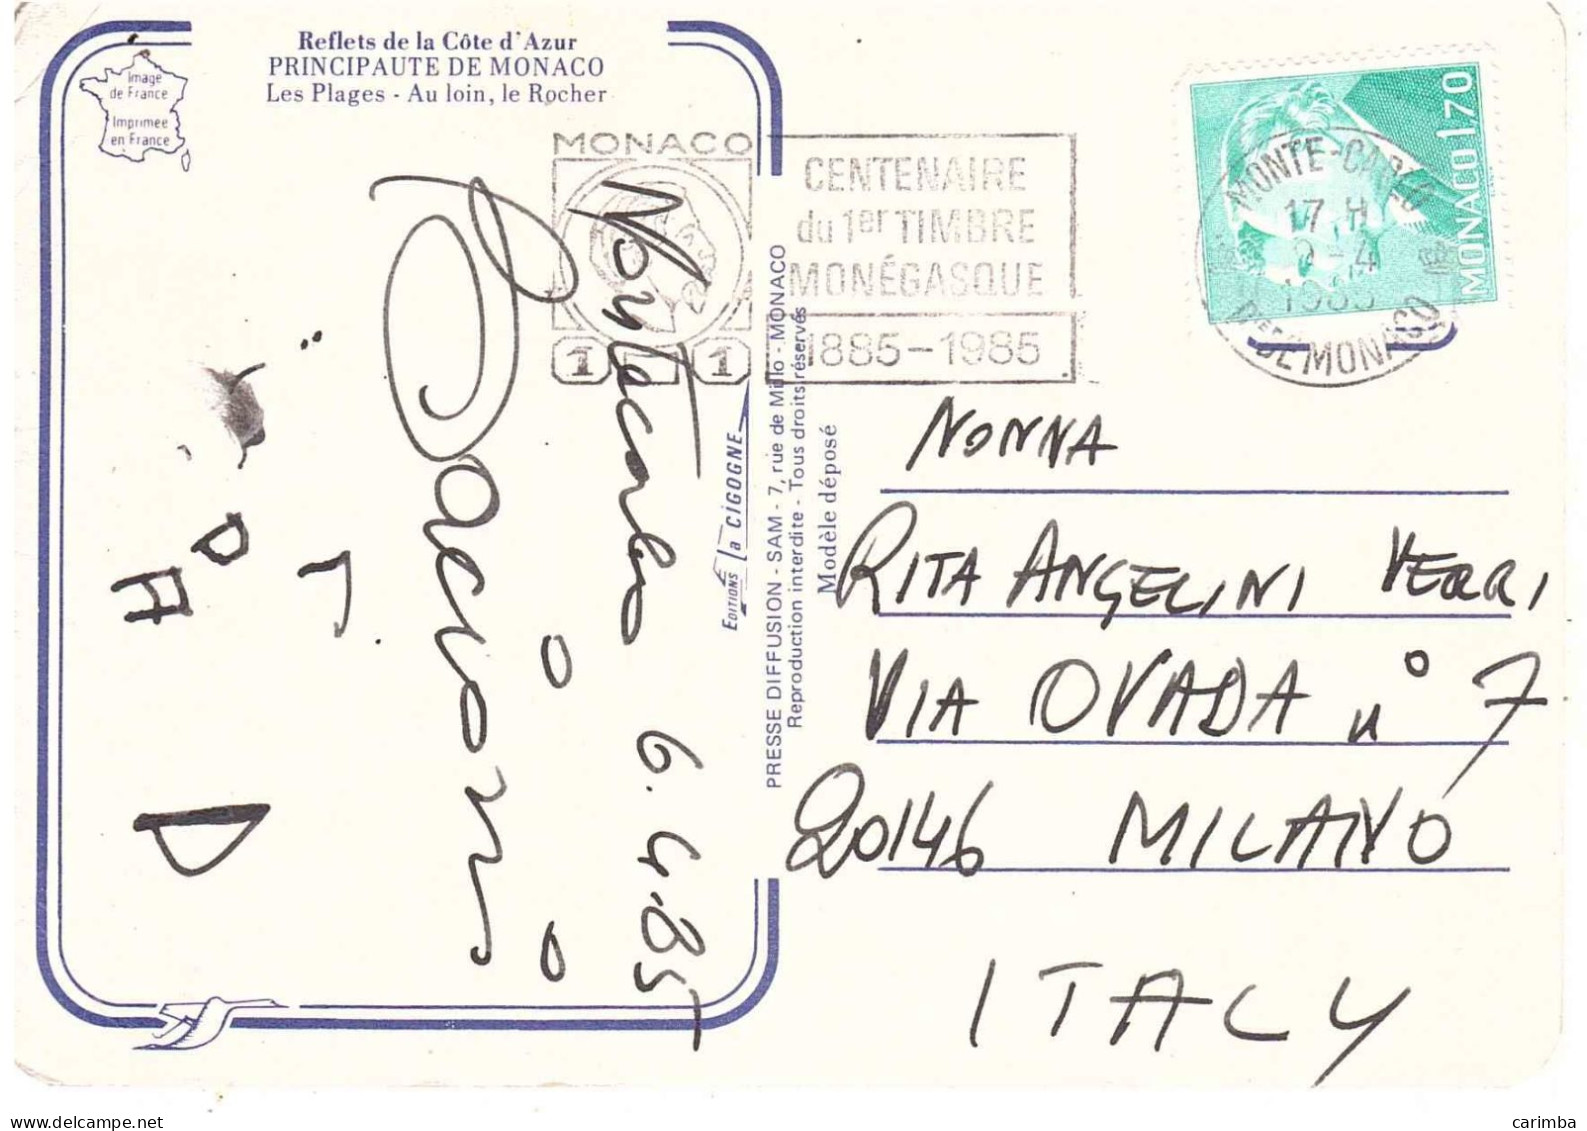 Reflets de la Côte d'Azur
PRINCIPAUTE DE MONACO
Les Plages - Au loin, le Rocher
Image
de France
Imprimée
en France
MONACO
1 1
CENTENAIRE
du 1er TIMBRE
MONÉGASQUE
1885-1985
MONACO 1,70
MONTE-CARLO
17 H
-4
1985
Pté DE MONACO
Montecarlo 6.4.85
Bacioni
EDITIONS la CIGOGNE
PRESSE DIFFUSION - SAM - 7, rue de Millo - MONACO
Reproduction interdite - Tous droits réservés
Modèle déposé
NONNA
RITA ANGELINI VERRI
VIA OVADA n° 7
20146 MILANO
ITALY
delcampe.net
carimba